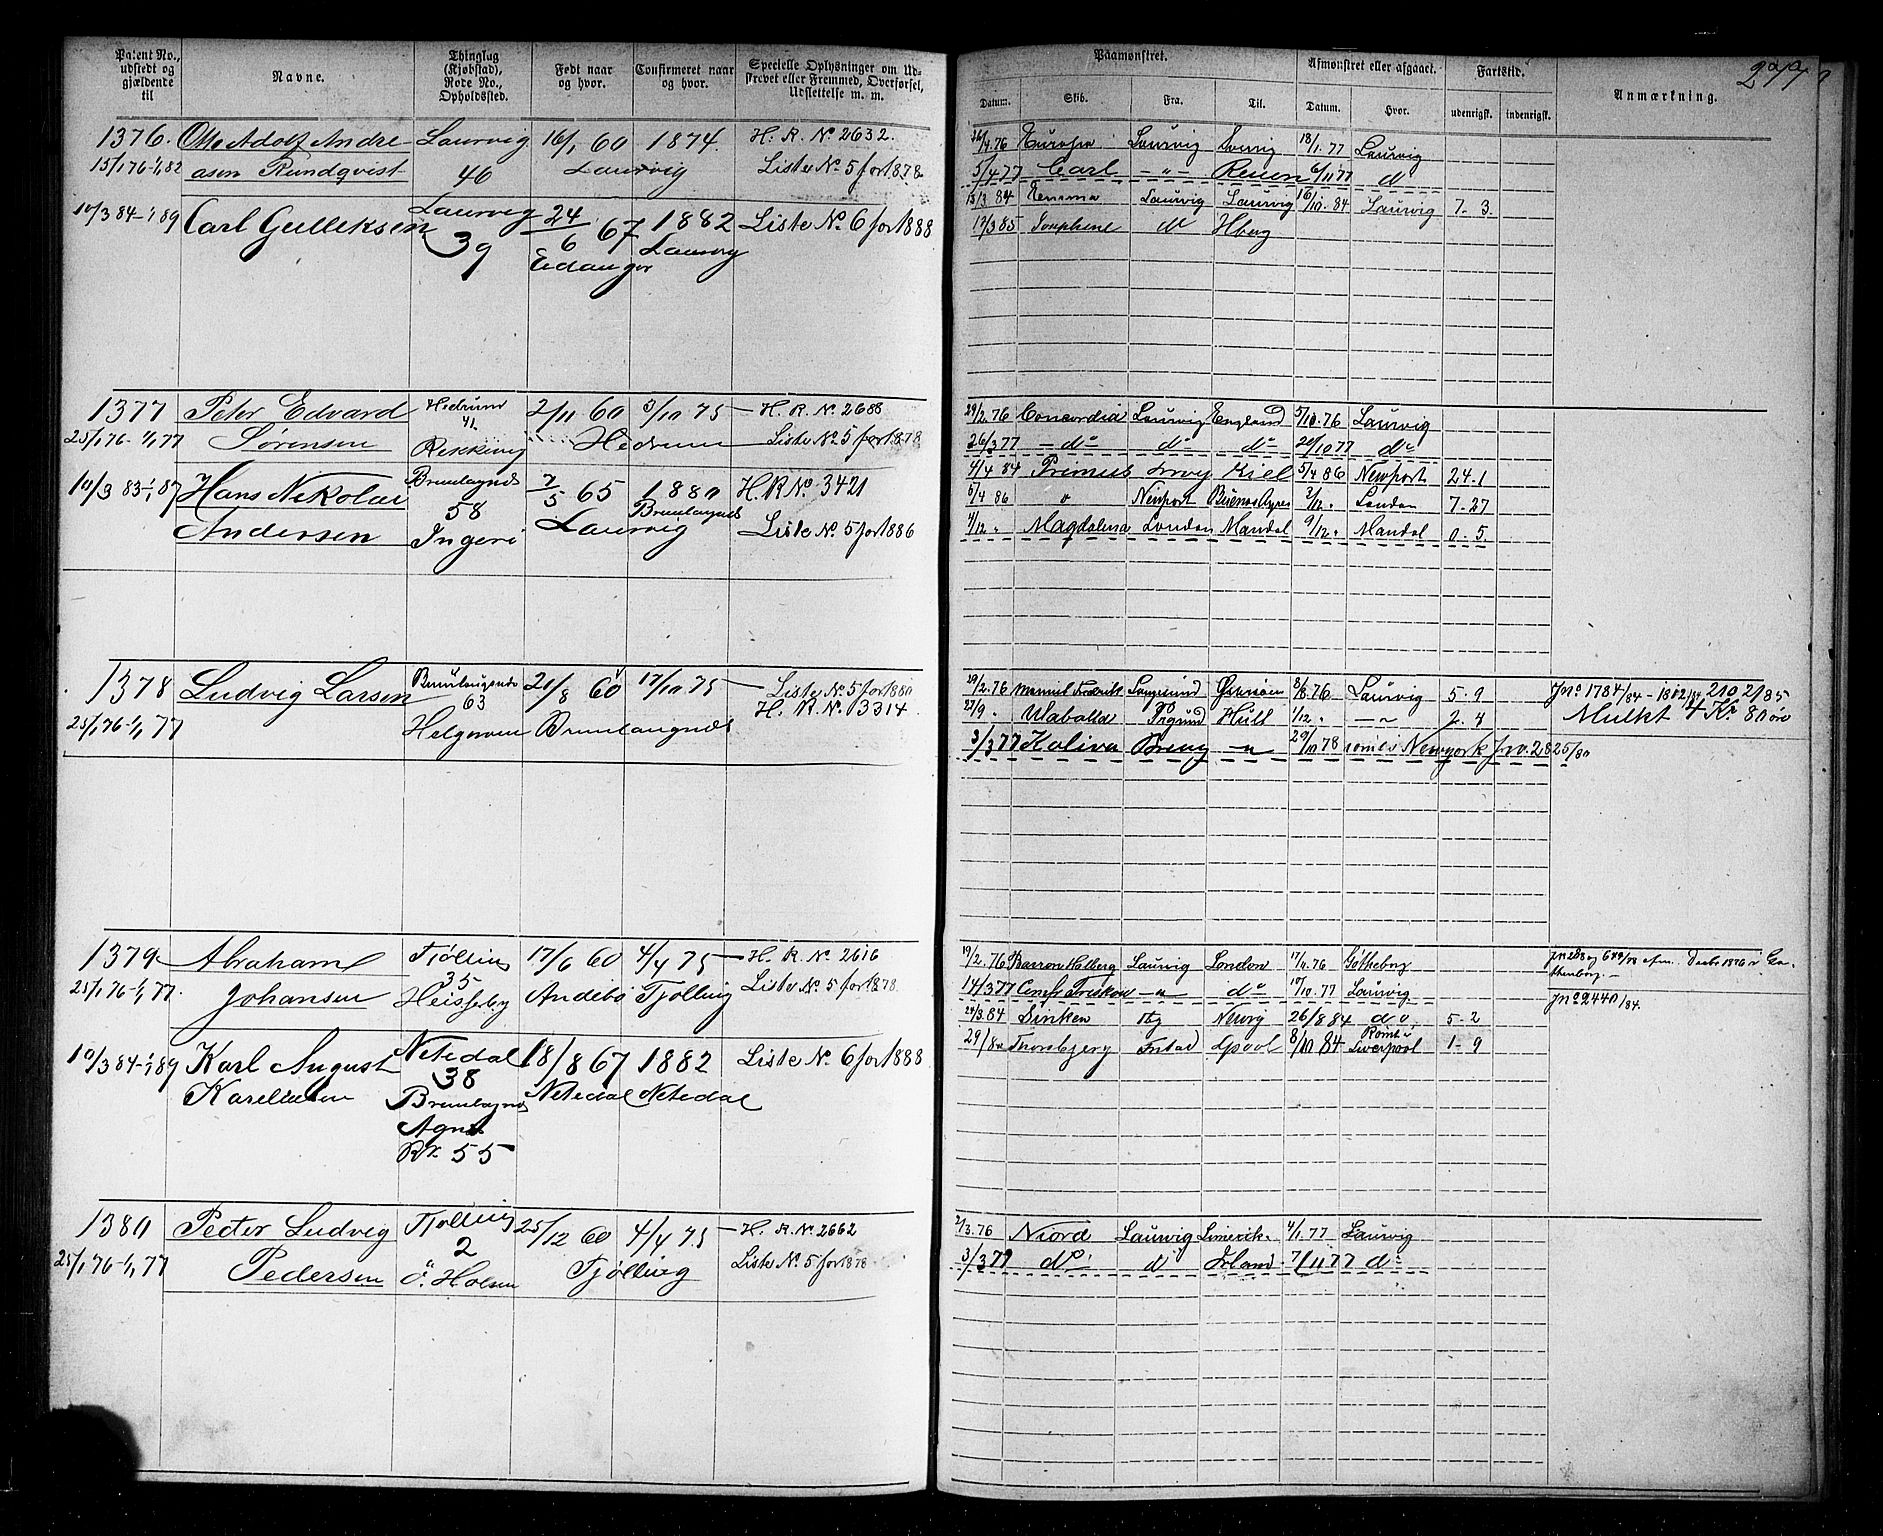 Patent No., udstedt og gjældende til
Navne.
Thinglag (Kjøbstad), Rode No., Opholdssted.
Født naar og hvor.
Confirmeret naar og hvor.
Specielle Oplysninger om Udskrevet eller Fremmed, Overførsel, Udslettelse m. m.
Paamønstret.
Afmønstret eller afgaaet.
Fartstid.
Anmærkning.
Datum. Skib. Fra. Til. Datum. Hvor. udenrigsk. indenrigsk.
277
1376. Otto Adolf Andre Laurvig 16/1 60 1874. H. R. No 2632.
15/1 76-1/1 82 asen Rundqvist 46 Laurvig Liste No 5 for 1878.
10/3 84-1/1 89 Carl Gulliksen Laurvig 24/6 67 1882 Liste No 6 for 1888
39 Eidanger Laurvig
26/4.76 Europa Laurvig 18/1.77 Laurvig
5/4 77 Carl -"- Rouen 6/11 77 do
13/3 84 Emma Laurvig Laurvig 16/10.84 Laurvig 7. 3.
17/3 85 Josephine do Hberg
1377 Peter Edvard Hedrum 2/11 60 3/10 75 H. R. No 2688
25/1 76-1/1 77 Sørensen 41. Hedrum Liste No 5 for 1878
10/3 83-1/1 87 Hans Nikolai Brunlagnes 7/5 65 1880 H. R No 3421
Andersen 58 Laurvig Brunlagnes Liste No. 5 for 1886
29/2.76 Concordia Laurvig England 5/10.76 Laurvig
26/3 77 -do- do do 20/10 77 do
4/4 84 Primus Lrvig Kiel 5/4 86 Newport 24.1
6/4 86 " Newport Buenos Ayres 2/12 " London 7.27
4/12 " Magdalena London Mandal 9/12 " Mandal 0.5.
1378 Ludvig Larsen Brunlaugnæs 21/8 60 17/10 75 Liste No. 5 for 1880
63 H. R. No. 3314.
25/1 76-1/1 77 Helgeroen Brunlaugnæs
29/2.76 8/8.76 Laurvig 5. 9 Jno 1784/84 - 1802/84 210 2/85
27/9 " Hull 1/12 " -"- 2. 4 Mulkt 4 Kr 80 øre
3/3 77 -"- 29/10 78 Newyork Jno. 2825/80
1379 Abraham Tjølling 17/6 60 4/4 75 H. R. No 2616
35
25/1 76-1/1 77. Johansen Andebo Tjølling Liste No. 5 for 1878.
10/3 84-1/1 89 Karl August Nesedal 18/8 67 1882 Liste No. 6 for 1888
38
Nesedal Nesedal
Brunlagnes
Agnæs
55
19/2.76 Barron Holberg Laurvig London 17/11.76 Gøtheborg
14/3 77 -"- do 17/10.77 Laurvig
Jno 2440/84.
24/3.84 26/8 84 do 5. 2
29/8 " Thorsbjerg Fstad Lpool 8/10 84 Liverpool 1- 9
1380 Peter Ludvig Tjølling 25/12 60 4/4 75 H. R. No. 2662
2
25/1 76-1/1 77 Pedersen Ø. Holsen Tjølling Liste No. 5 for 1878
2/3.76 Niord Laurvig Limerik. 4/1.77 Laurvig
3/3 77 do do Irland. 7/11 77 do